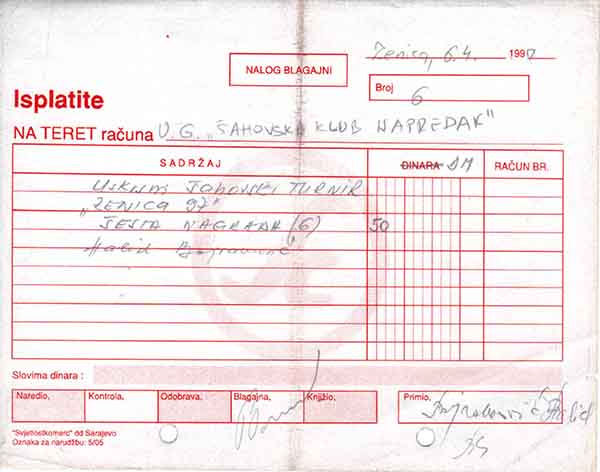 Zenica, 6.4. 1997
NALOG BLAGAJNI
Broj
6
Isplatite
NA TERET računa U.G. „ŠAHOVSKI KLUB NAPREDAK"
SADRŽAJ DINARA DM RAČUN BR.
Uskrsni ŠahovSKI TURNIR
„ZENICA 97"
ŠESTA NAGRADA (6) 50
Halid
Slovima dinara :
Naredio, Kontrola, Odobrava, Blagajna, Knjižio, Primio,
Bajraktarević Halid
"Svjetlostkomerc" dd Sarajevo
Oznaka za narudžbu: 5/05